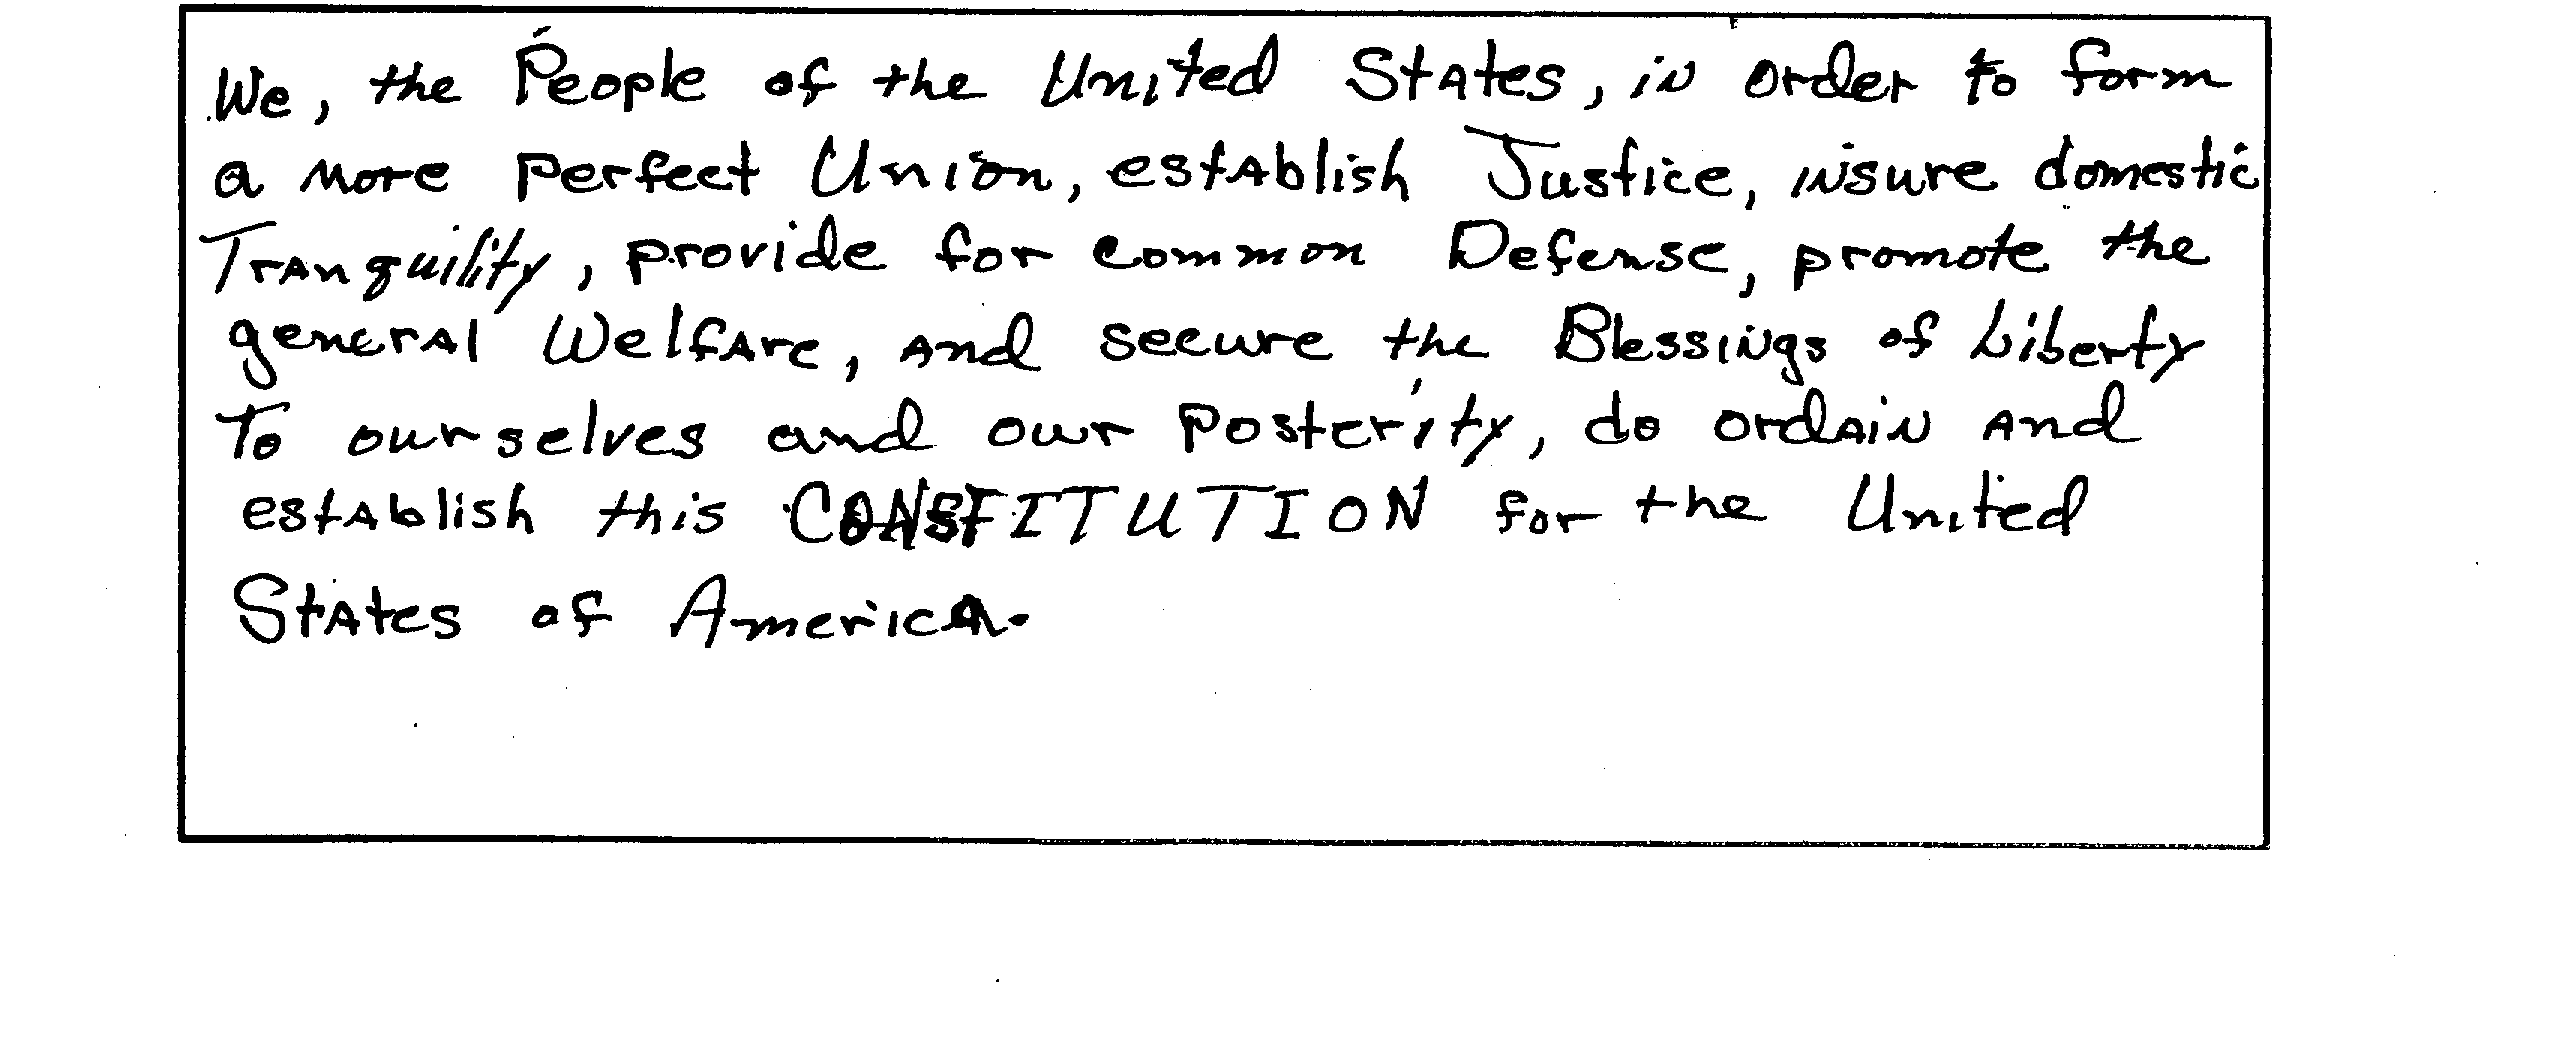 We, the People of the United States, in order to form
a more perfect Union, establish Justice, insure domestic
Tranquility, provide for common Defense, promote the
general Welfare, and secure the Blessings of Liberty
to ourselves and our posterity, do ordain and
establish this CONSTITUTION for the United
States of America.